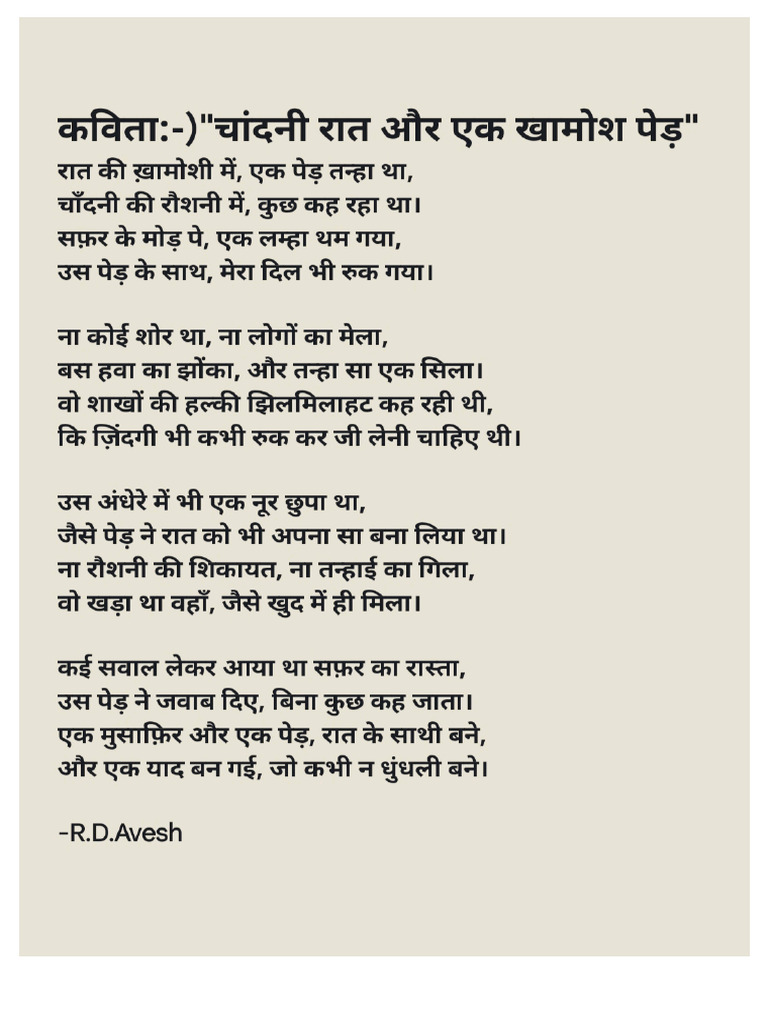 कविता:-)"चांदनी रात और एक खामोश पेड़"
रात की ख़ामोशी में, एक पेड़ तन्हा था,
चाँदनी की रौशनी में, कुछ कह रहा था।
सफ़र के मोड़ पे, एक लम्हा थम गया,
उस पेड़ के साथ, मेरा दिल भी रुक गया।
ना कोई शोर था, ना लोगों का मेला,
बस हवा का झोंका, और तन्हा सा एक सिला।
वो शाखों की हल्की झिलमिलाहट कह रही थी,
कि ज़िंदगी भी कभी रुक कर जी लेनी चाहिए थी।
उस अंधेरे में भी एक नूर छुपा था,
जैसे पेड़ ने रात को भी अपना सा बना लिया था।
ना रौशनी की शिकायत, ना तन्हाई का गिला,
वो खड़ा था वहाँ, जैसे खुद में ही मिला।
कई सवाल लेकर आया था सफ़र का रास्ता,
उस पेड़ ने जवाब दिए, बिना कुछ कह जाता।
एक मुसाफ़िर और एक पेड़, रात के साथी बने,
और एक याद बन गई, जो कभी न धुंधली बने।
-R.D.Avesh